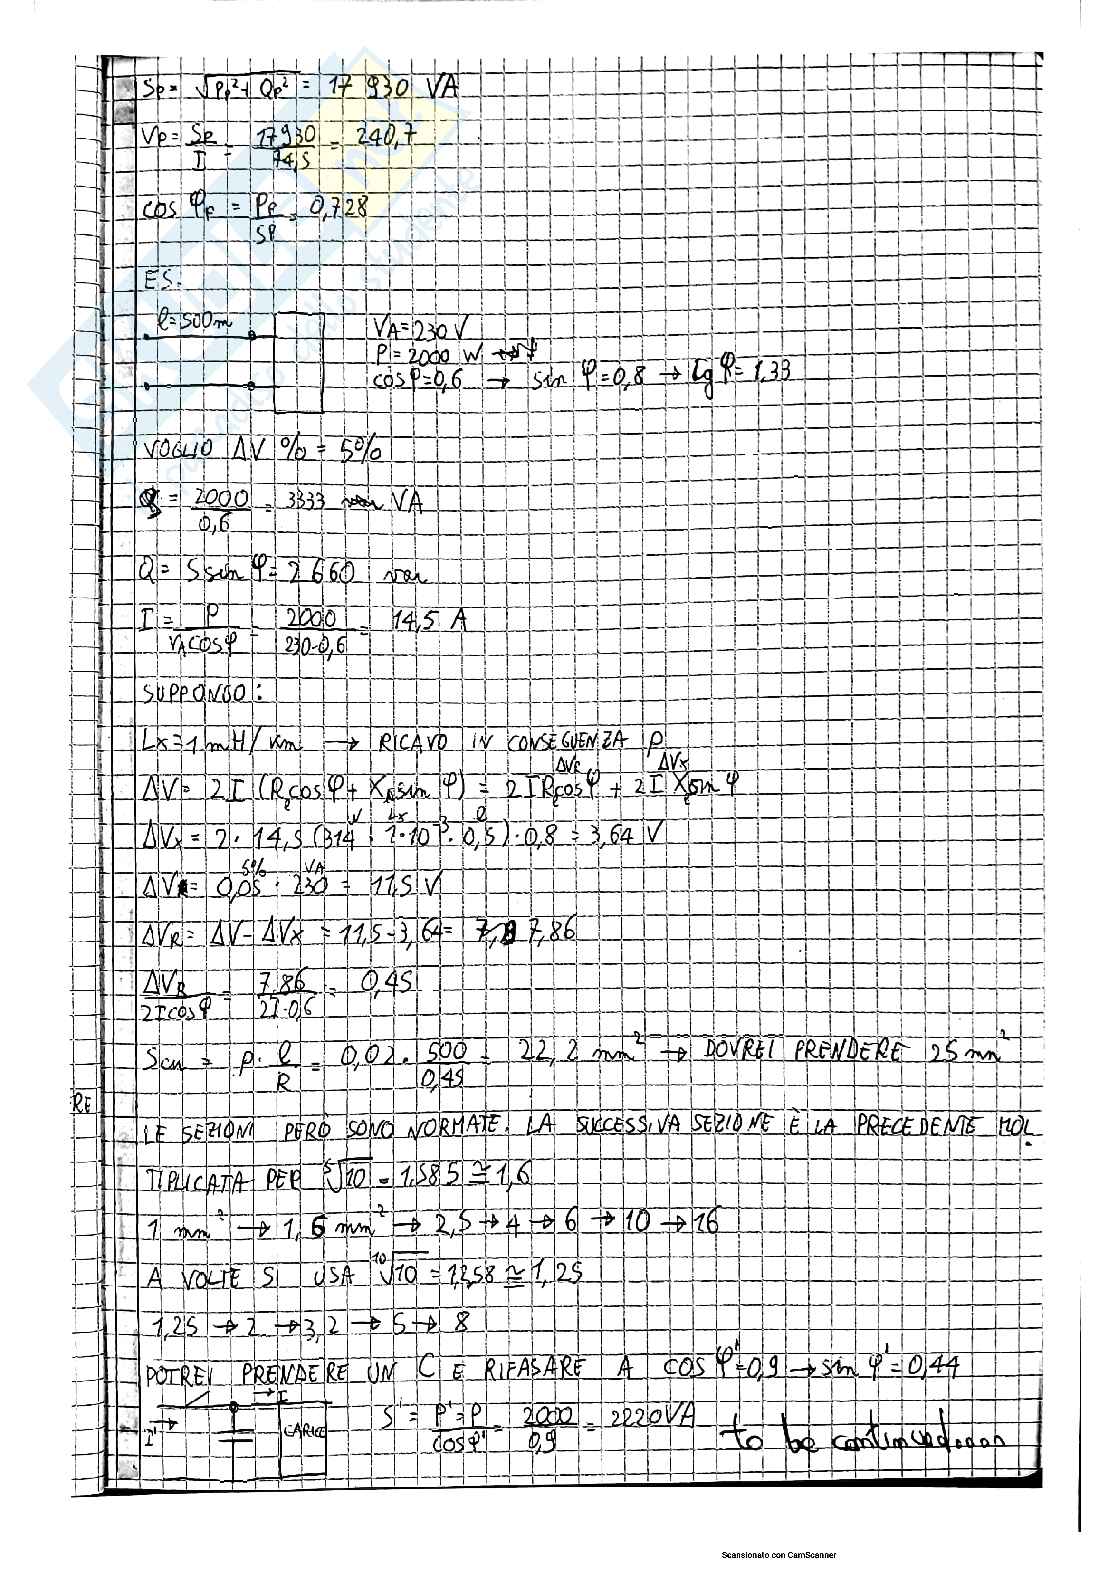 Sp = √Pp²+Qp² = 17 930 VA
Vp = Sp/I = 17930/74,5 = 240,7
cos φp = Pp/Sp = 0,728
ES.
l=500m
VA=230 V
P=2000 W
cosφ=0,6 → sin φ=0,8 → tg φ=1,33
VOGLIO ΔV % = 5%
= 2000/0,6 = 3333 VA
Q = S sin φ = 2 660 var
I = P/VA cosφ = 2000/230·0,6 = 14,5 A
SUPPONGO:
Lx=1 mH/km → RICAVO IN CONSEGUENZA ρ
ΔVR ΔVx
ΔV = 2I (Rl cosφ + Xl sin φ) = 2IRl cosφ + 2I Xl sin φ
W Lx l
ΔVx = 2·14,5 (314 · 1·10⁻³ · 0,5)·0,8 = 3,64 V
5% VA
ΔV = 0,05 · 230 = 11,5 V
ΔVR = ΔV - ΔVx = 11,5-3,64 = 7,86
ΔVR/2I cosφ = 7,86/2I·0,6 = 0,45
Scu = ρ · l/R = 0,02 · 500/0,45 = 22,2 mm² → DOVREI PRENDERE 25 mm²
RE
LE SEZIONI PERÒ SONO NORMATE. LA SUCCESSIVA SEZIONE È LA PRECEDENTE MOL
TIPLICATA PER ⁵√10 = 1,585 ≅ 1,6
1 mm² → 1,6 mm² → 2,5 → 4 → 6 → 10 → 16
A VOLTE SI USA ¹⁰√10 = 1,258 ≅ 1,25
1,25 → 2 → 3,2 → 5 → 8
POTREI PRENDERE UN C E RIFASARE A COS φ'=0,9 → sin φ'=0,44
I
I'
CARICO
S' = P'=P/cosφ' = 2000/0,9 = 2220VA
to be continued....
Scansionato con CamScanner